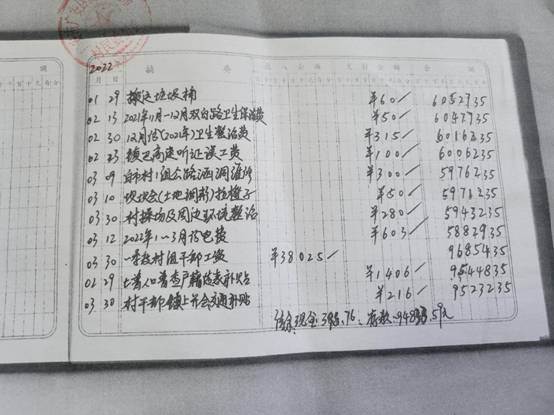 2022
月 日 摘要 收入金额 支付金额 余额
01 29 搬运垃圾桶 ¥60/ 6052735
02 13 2021年11月-12月双白路卫生保洁费 ¥50/ 6047735
02 30 12月份(2021年)卫生整治费 ¥315/ 6016235
02 23 镇巴高速听证误工费 ¥100/ 6006235
03 09 村1组公路涵洞维修 ¥300/ 5976235
03 10 坝坝会(土地调整)捡橙子 ¥50/ 5971235
03 30 村操场及周边环境整治 ¥280/ 5943235
03 12 2022年1-3月份电费 ¥603/ 5882935
03 30 一季度村组干部工资 ¥38025/ 9685435
02 29 人口普查户籍 补贴 ¥1406/ 9544835
03 30 村干部镇上开会交通补贴 ¥216/ 9523235
结余:现金: .76、存款: 59元